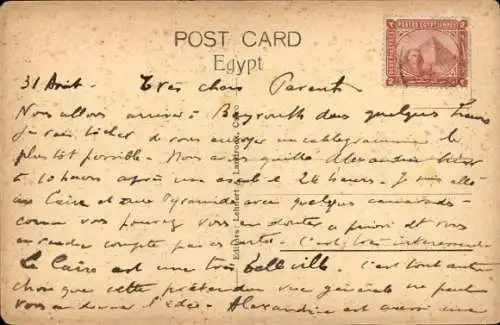 POST CARD
Egypt
POSTES EGYPTIENNES
31 Août. Très chers Parents
Nous allons arriver à Beyrouth dans quelques heures
je vais tâcher de vous envoyer un cablogramme le
plus tôt possible. Nous avons quitté Alexandrie hier
à 10 heures après un arrêt de 24 heures. Je suis allé
au Caire et aux Pyramides avec quelques camarades
comme vous pouvez vous en douter a priori et vous
en rendre compte par ces cartes. C'est très intéressant
Le Caire est une très belle ville. C'est tout autre
chose que cette prétendue vue générale ne peut
vous en donner l'idée. Alexandrie est aussi une
Editors: Lehnert & Landrock, Cairo